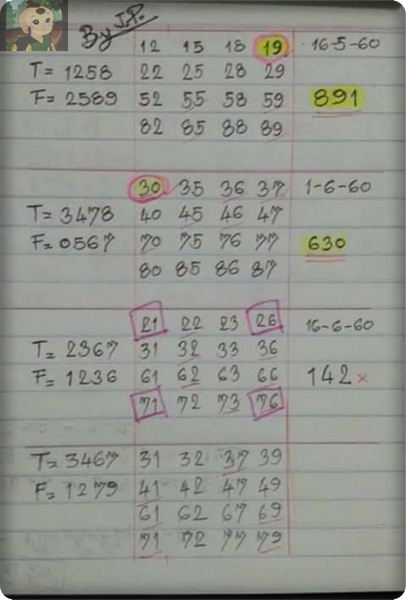 By J.P.
12 15 18 19 16-5-60
T = 1258 22 25 28 29
F = 2589 52 55 58 59 891
82 85 88 89
30 35 36 37 1-6-60
T = 3478 40 45 46 47
F = 0567 70 75 76 77 630
80 85 86 87
21 22 23 26 16-6-60
T = 2367 31 32 33 36
F = 1236 61 62 63 66 142 ×
71 72 73 76
T = 3467 31 32 37 39
F = 1279 41 42 47 49
61 62 67 69
71 72 77 79